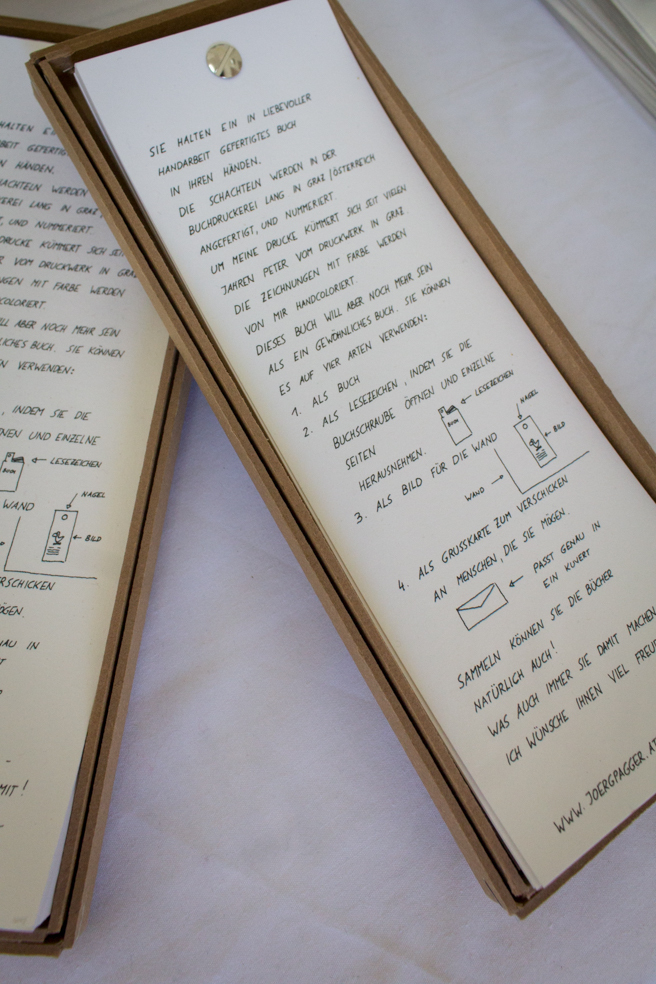 SIE HALTEN EIN IN LIEBEVOLLER
HANDARBEIT GEFERTIGTES BUCH
IN IHREN HÄNDEN.
DIE SCHACHTELN WERDEN IN DER
BUCHDRUCKEREI LANG IN GRAZ/ÖSTERREICH
ANGEFERTIGT, UND NUMMERIERT.
UM MEINE DRUCKE KÜMMERT SICH SEIT VIELEN
JAHREN PETER VOM DRUCKWERK IN GRAZ.
DIE ZEICHNUNGEN MIT FARBE WERDEN
VON MIR HANDCOLORIERT.
DIESES BUCH WILL ABER NOCH MEHR SEIN
ALS EIN GEWÖHNLICHES BUCH. SIE KÖNNEN
ES AUF VIER ARTEN VERWENDEN:
1. ALS BUCH
2. ALS LESEZEICHEN, INDEM SIE DIE
BUCHSCHRAUBE ÖFFNEN UND EINZELNE
SEITEN
HERAUSNEHMEN.
BUCH
LESEZEICHEN
3. ALS BILD FÜR DIE WAND
NAGEL
BILD
WAND
4. ALS GRUSSKARTE ZUM VERSCHICKEN
AN MENSCHEN, DIE SIE MÖGEN.
PASST GENAU IN
EIN KUVERT
SAMMELN KÖNNEN SIE DIE BÜCHER
NATÜRLICH AUCH!
WAS AUCH IMMER SIE DAMIT MACHEN
ICH WÜNSCHE IHNEN VIEL FREUD
WWW.JOERGPAGGER.AT
HALTEN
GEFERTIG
N HÄNDEN.
HACHTELN WERDEN
EREI LANG IN GRAZ
T, UND NUMMERIERT.
DRUCKE KÜMMERT SICH SEIT
R VOM DRUCKWERK IN GRA
NGEN MIT FARBE WERDEN
COLORIERT.
LL ABER NOCH MEHR SEIN
LICHES BUCH. SIE KÖNNEN
N VERWENDEN:
, INDEM SIE DIE
NEN UND EINZELNE
BUCH
LESEZEICHEN
WAND
NAGEL
BILD
RSCHICKEN
ÖGEN.
AU IN
MIT!